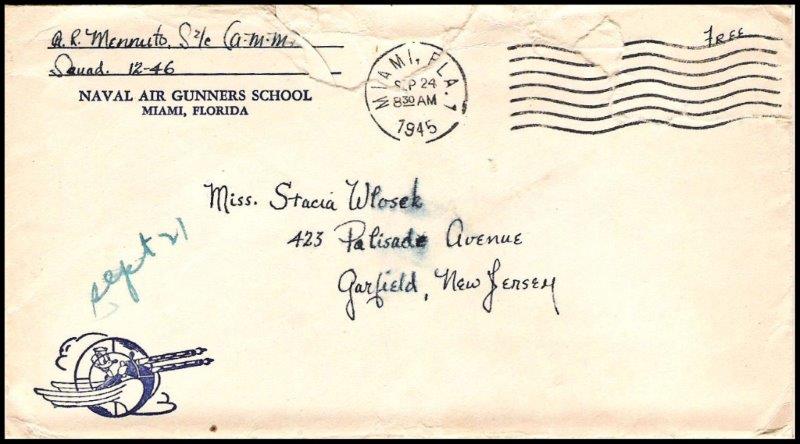 A.R. Mennuto, S 2/c (A.M.M.)
Squad. 12-46
NAVAL AIR GUNNERS SCHOOL
MIAMI, FLORIDA
MIAMI, FLA. 1
SEP 24
8 30 AM
1945
FREE
Miss. Stacia Wlosek
423 Palisade Avenue
Garfield, New Jersey
Sept 21